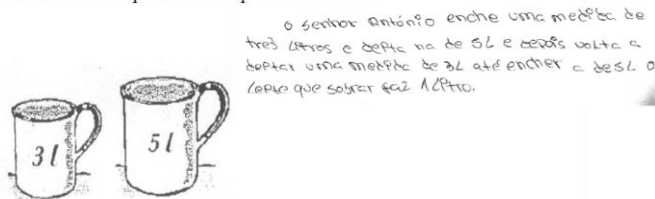 o senhor António enche uma medida de
três litros e deita na de 5L e depois volta a
deitar uma medida de 3L até encher a de 5L o
leite que sobrar faz 1 Litro.
3 l
5 l